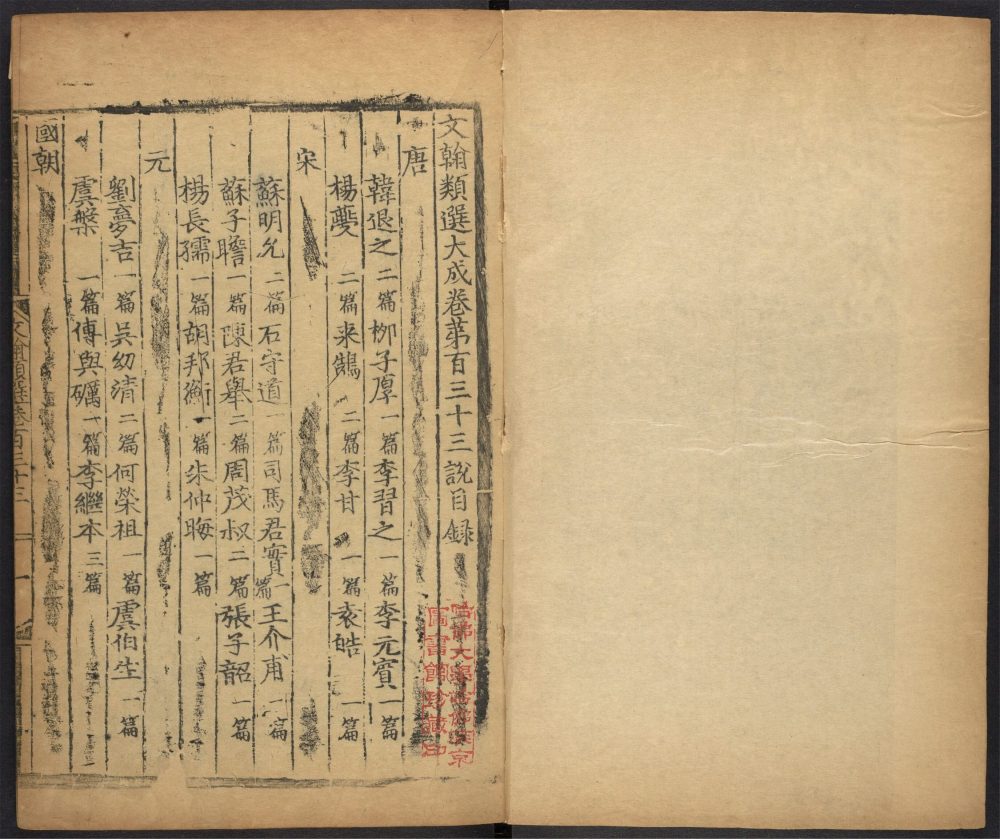 文翰類選大成卷第百三十三說目録
唐
韓退之二篇栁子厚一篇李習之一篇李元賓一篇
楊夔二篇来鵠二篇李甘一篇袁皓一篇
宋
蘇明允二篇石守道一篇司馬君實一篇王介甫一篇
蘇子瞻一篇陳君舉二篇周茂叔二篇張子韶一篇
楊長孺一篇胡邦衡一篇朱仲晦一篇
元
劉夢吉一篇吳幼清二篇何榮祖一篇虞伯生一篇
虞槃一篇傅與礪一篇李繼本三篇
國朝
文翰類選卷百三十三 一
哈佛大學哈佛燕京
圖書館珍藏印